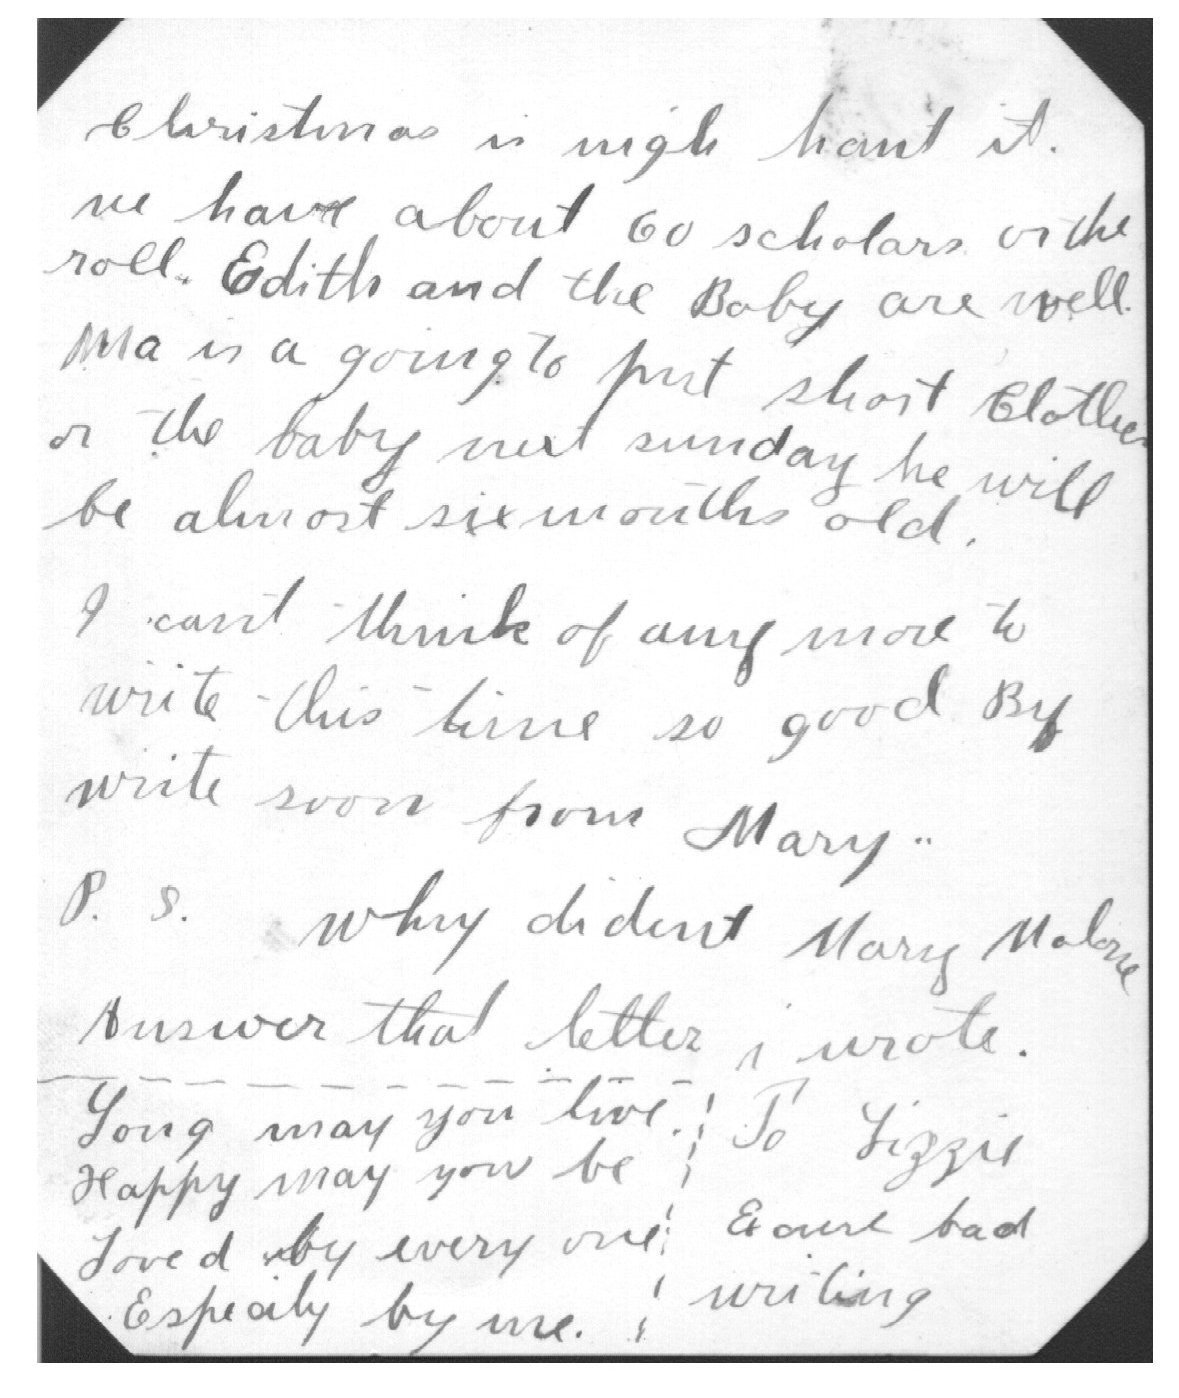 Christmas is nigh haint it.
we have about 60 scholars on the
roll. Edith and the Baby are well.
Ma is a going to put short Clothes
on the baby next sunday he will
be almost six months old.
I cant think of any more to
write this time so good By
write soon from Mary"
P. S. Why dident Mary Malone
Answer that letter i wrote.
Long may you live.
Happy may you be
Loved by every one
Especily by me.
To Lizzie
Excuse bad
writing